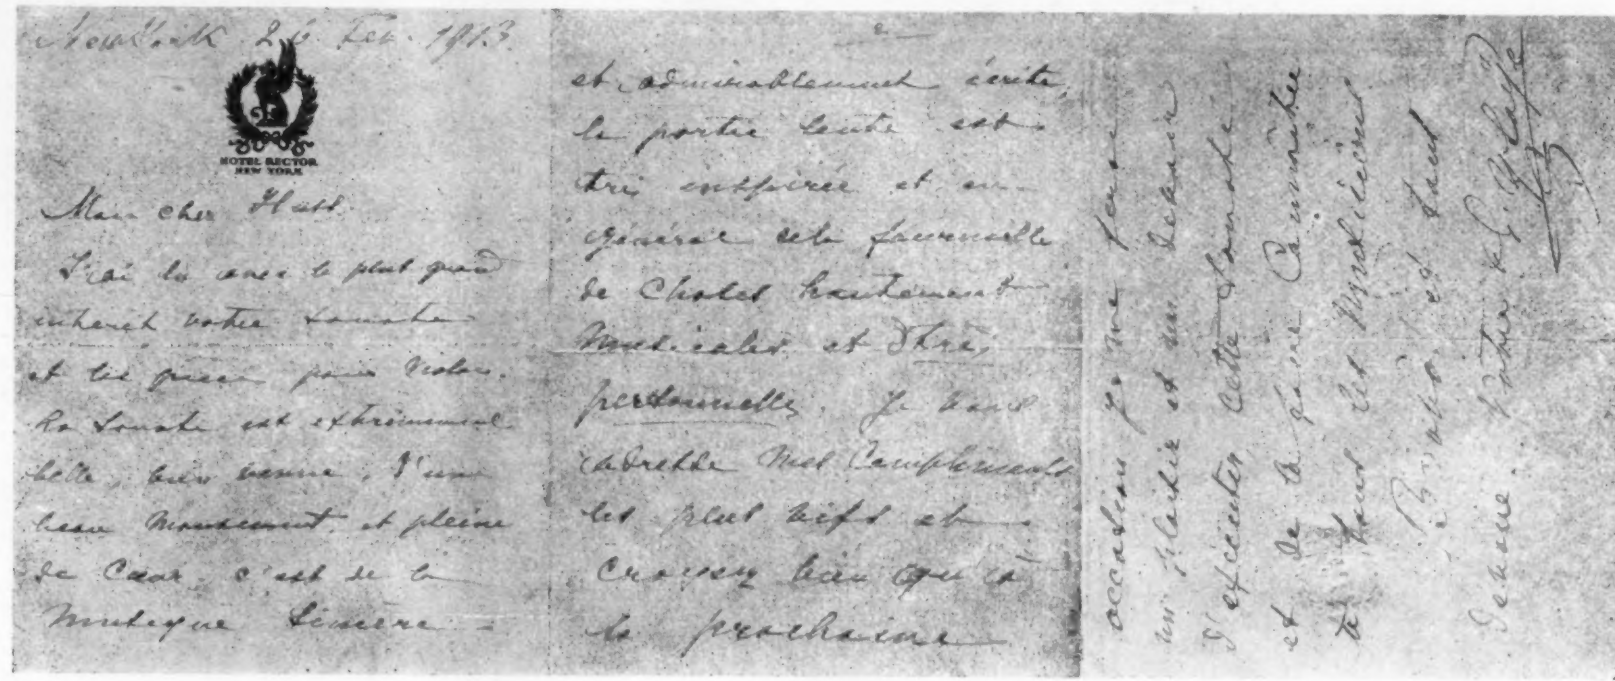 New York 26 Fev. 1913.
HOTEL RECTOR
NEW YORK
Mon cher Huss
J'ai lu avec le plus grand
intérêt votre Sonate
et les pièces pour Violon.
La Sonate est extrêmement
belle, bien venue, d'un
beau mouvement et pleine
de Cœur. c'est de la
musique sincère -
2
et admirablement écrite,
la partie lente est
très inspirée et en
général cela fourmille
de choses hautement
musicales et très
personnelles. Je vous
adresse mes Compliments
les plus vifs et
croyez bien qu'à
la prochaine
occasion je me ferai
un plaisir et un devoir
d'exécuter cette Sonate
et de la faire Connaître
à tous les Musiciens
Bravo et tout
votre
Ysaÿe